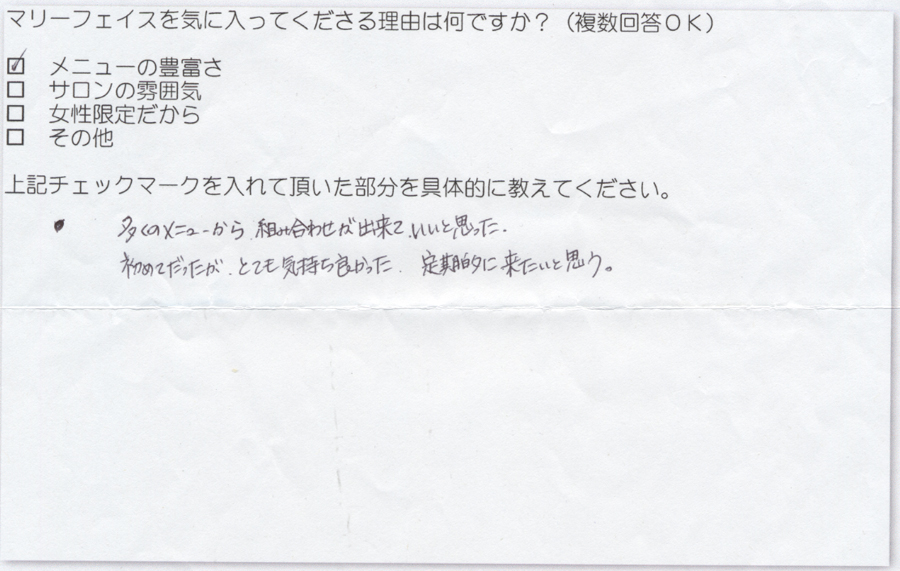 マリーフェイスを気に入ってくださる理由は何ですか？（複数回答ＯＫ）
☑ メニューの豊富さ
□ サロンの雰囲気
□ 女性限定だから
□ その他
上記チェックマークを入れて頂いた部分を具体的に教えてください。
・ 多くのメニューから、組み合わせが出来て、いいと思った。
初めてだったが、とても気持ち良かった、定期的に来たいと思う。